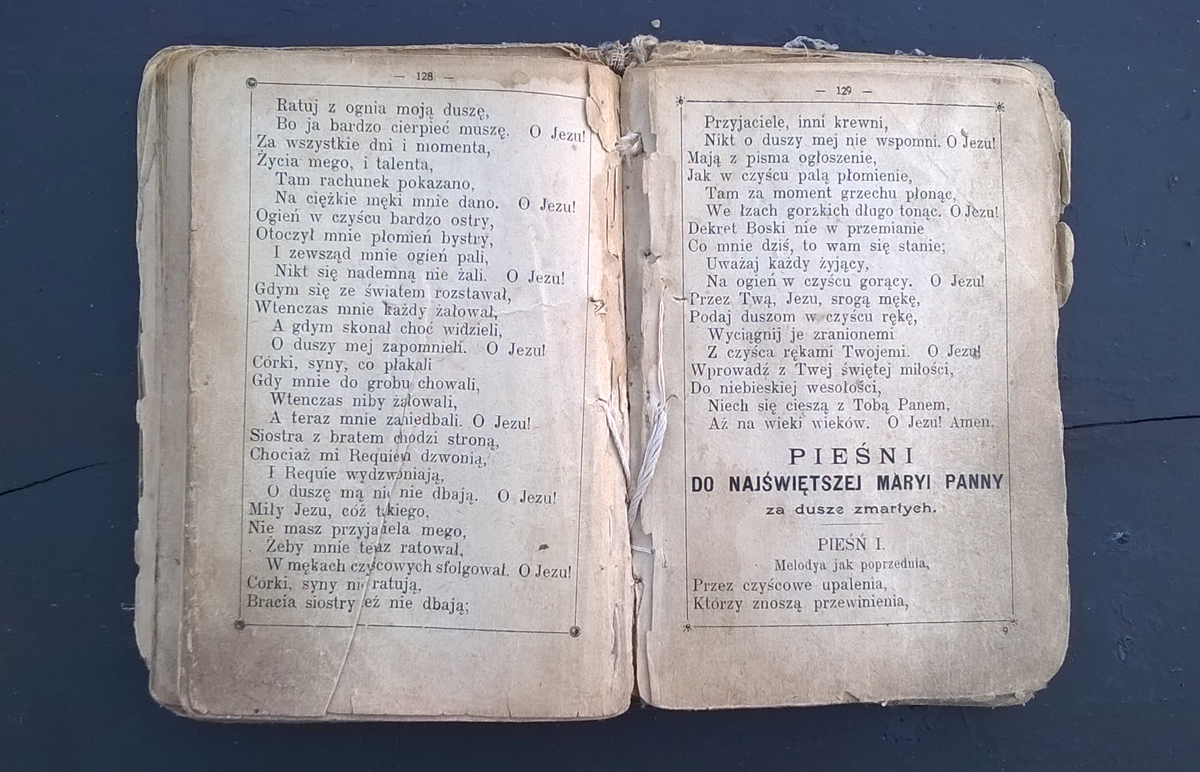 — 128 —
Ratuj z ognia moją duszę,
Bo ja bardzo cierpieć muszę. O Jezu!
Za wszystkie dni i momenta,
Życia mego, i talenta,
Tam rachunek pokazano,
Na ciężkie męki mnie dano. O Jezu!
Ogień w czyścu bardzo ostry,
Otoczył mnie płomień bystry,
I zewsząd mnie ogień pali,
Nikt się nademną nie żali. O Jezu!
Gdym się ze światem rozstawał,
Wtenczas mnie każdy żałował,
A gdym skonał choć widzieli,
O duszy mej zapomnieli. O Jezu!
Córki, syny, co płakali
Gdy mnie do grobu chowali,
Wtenczas niby żałowali,
A teraz mnie zaniedbali. O Jezu!
Siostra z bratem chodzi stroną,
Chociaż mi Requiem dzwonią,
I Requie wydzwoniają,
O duszę mą nic nie dbają. O Jezu!
Miły Jezu, cóż takiego,
Nie masz przyjaciela mego,
Żeby mnie teraz ratował,
W mękach czyścowych sfolgował. O Jezu!
Córki, syny nie ratują,
Bracia siostry też nie dbają;
— 129 —
Przyjaciele, inni krewni,
Nikt o duszy mej nie wspomni. O Jezu!
Mają z pisma ogłoszenie,
Jak w czyścu palą płomienie,
Tam za moment grzechu płonąc,
We łzach gorzkich długo tonąc. O Jezu!
Dekret Boski nie w przemianie
Co mnie dziś, to wam się stanie;
Uważaj każdy żyjący,
Na ogień w czyścu gorący. O Jezu!
Przez Twą, Jezu, srogą mękę,
Podaj duszom w czyścu rękę,
Wyciągnij je zranionemi
Z czyśca rękami Twojemi. O Jezu!
Wprowadź z Twej świętej miłości,
Do niebieskiej wesołości,
Niech się cieszą z Tobą Panem,
Aż na wieki wieków. O Jezu! Amen.
PIEŚNI
DO NAJŚWIĘTSZEJ MARYI PANNY
za dusze zmarłych.
PIEŚŃ I.
Melodya jak poprzednia,
Przez czyścowe upalenia,
Którzy znoszą przewinienia,
9